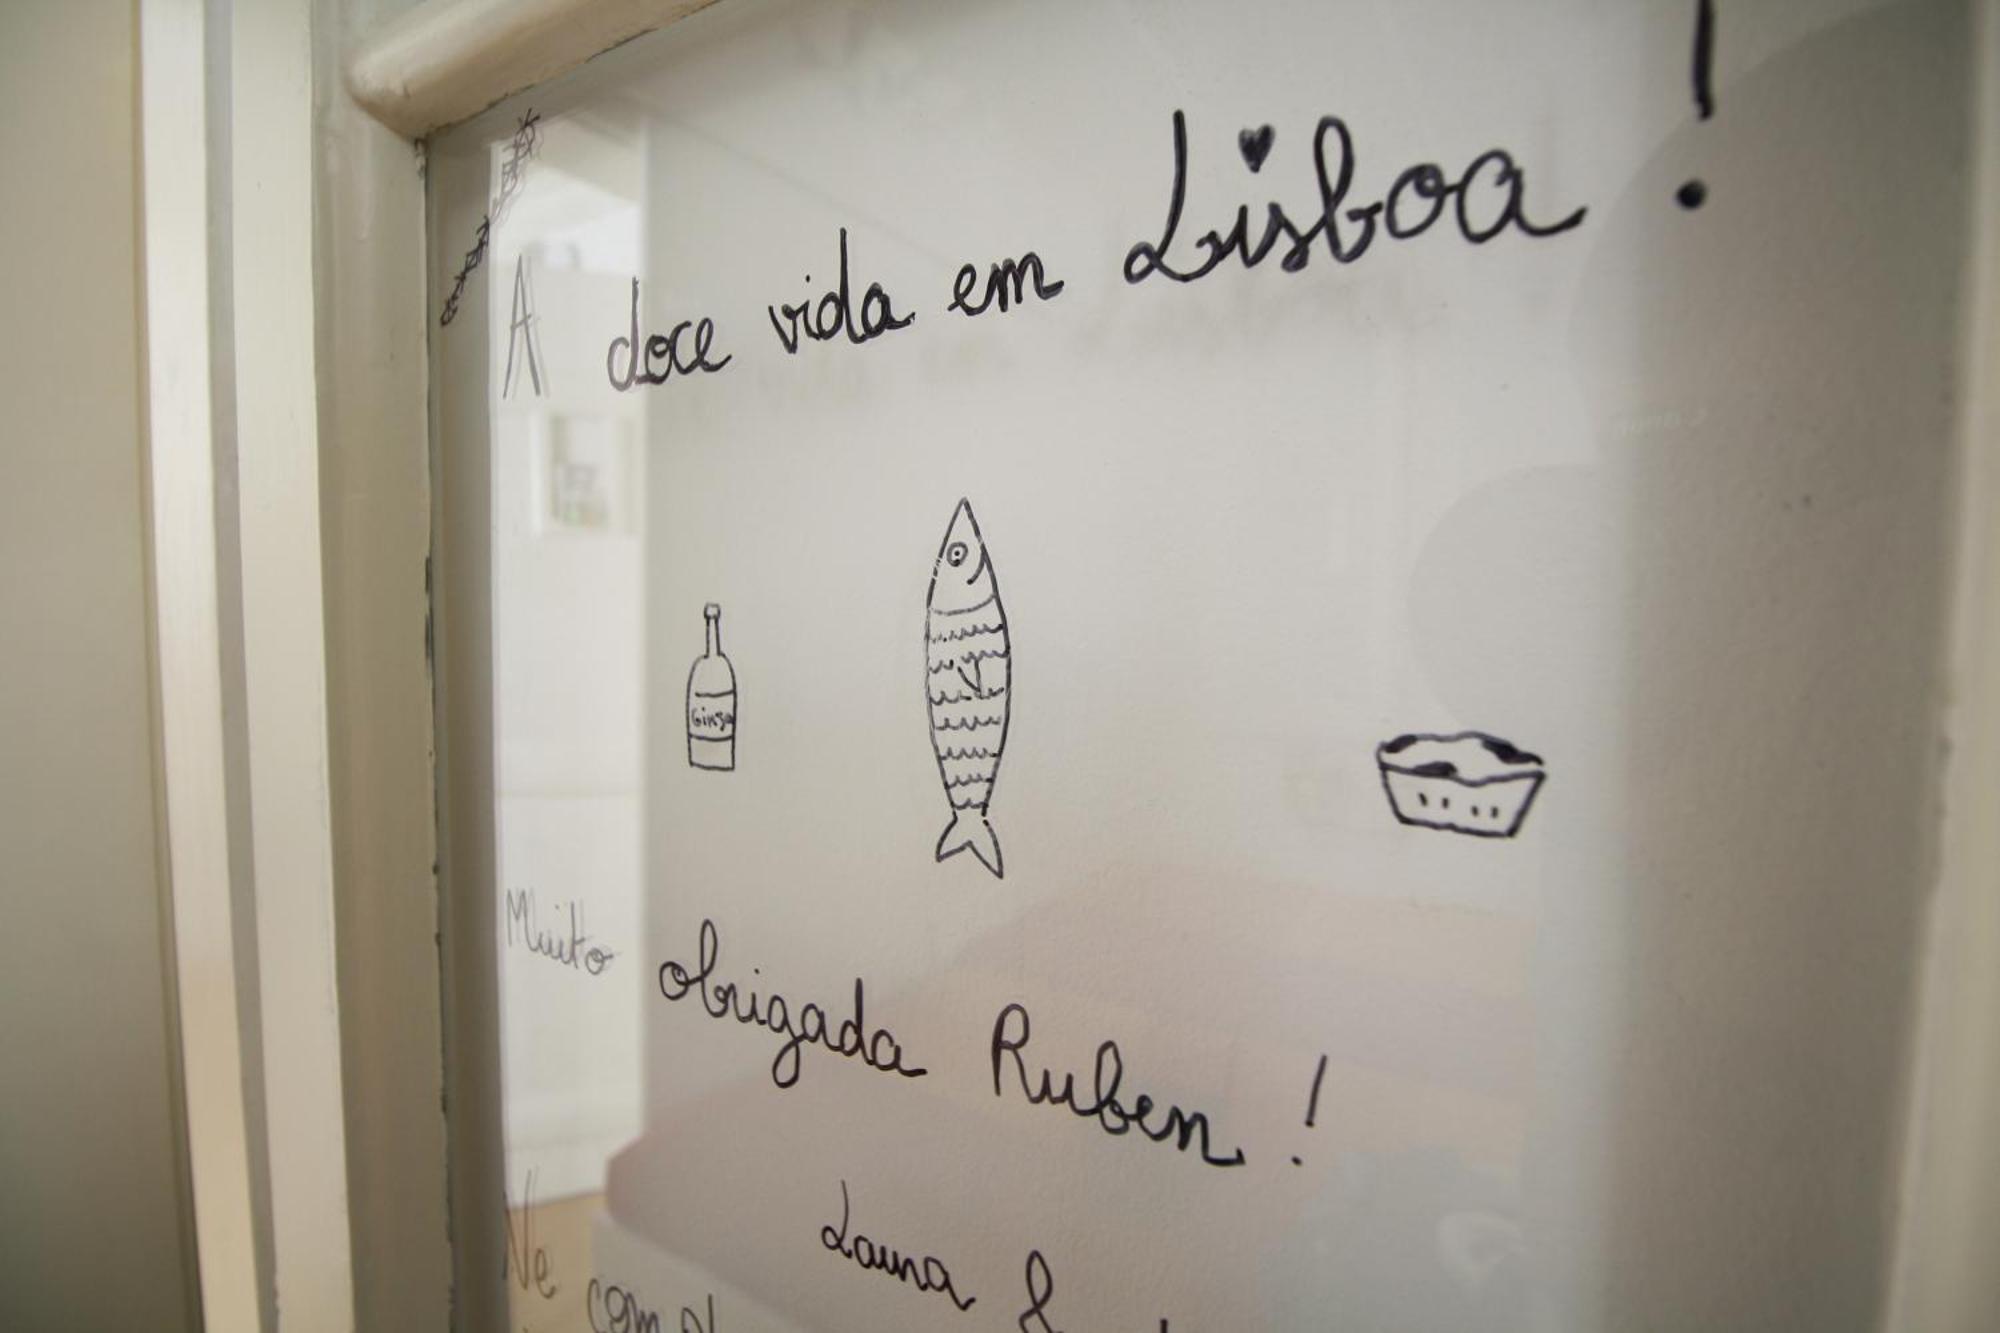 A doce vida em Lisboa !
Ginja
Muito obrigada Ruben !